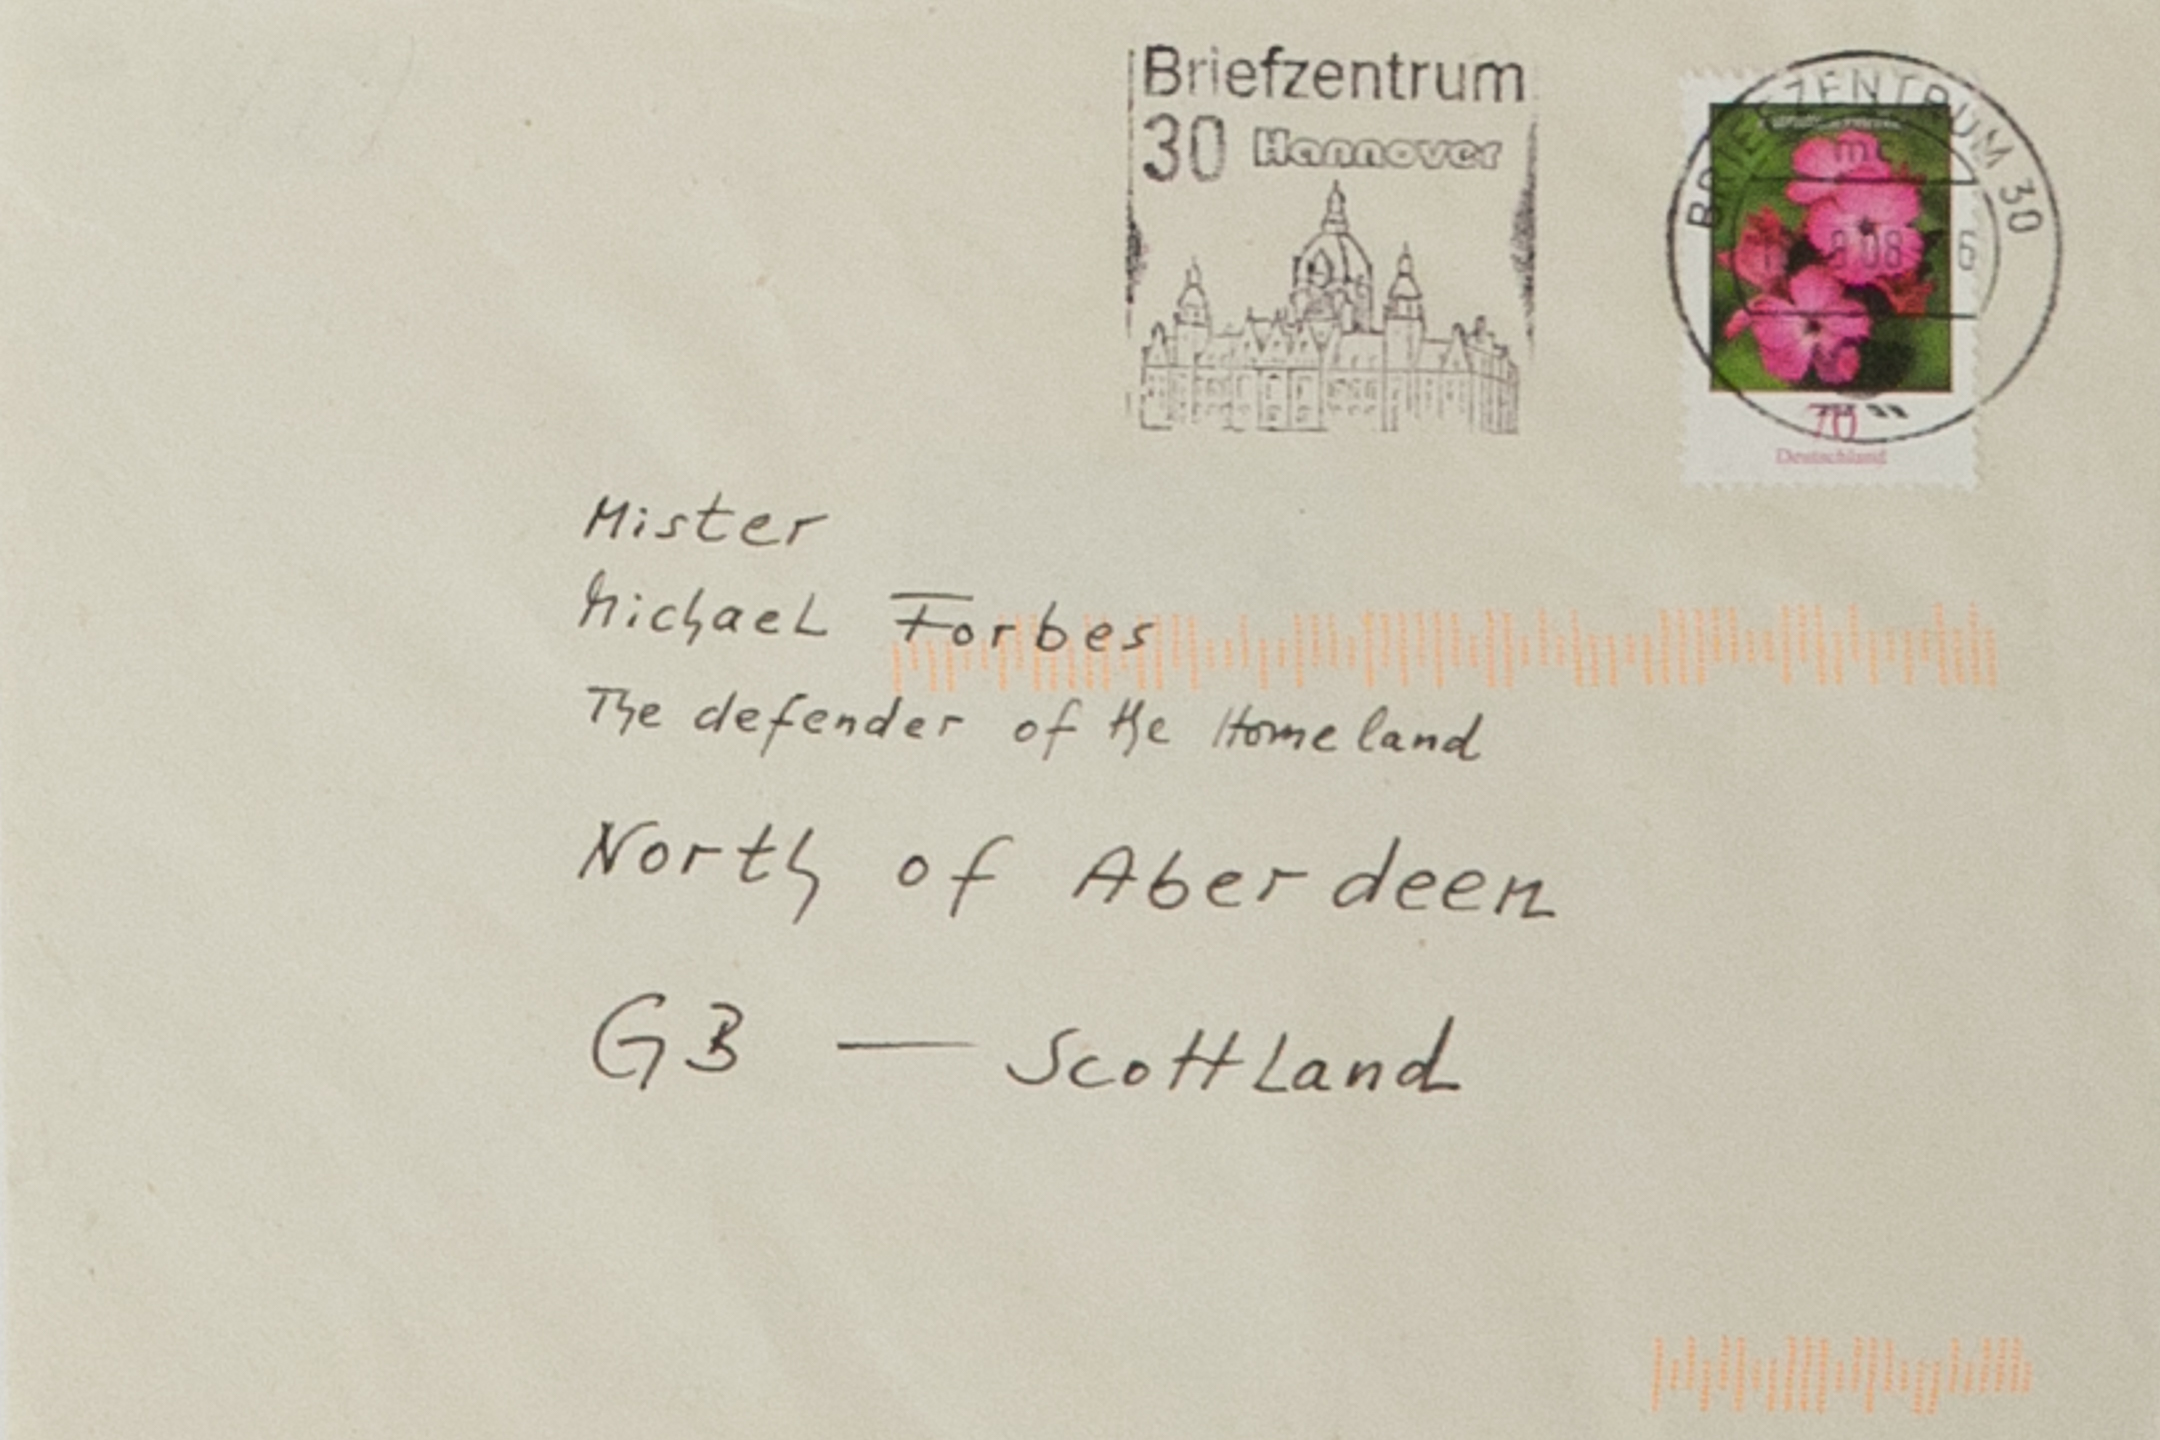 Briefzentrum
30 Hannover
BRIEFZENTRUM 30
mc
9.08 6
70
Deutschland
Mister
Michael Forbes
The defender of the Homeland
North of Aberdeen
GB — Scottland